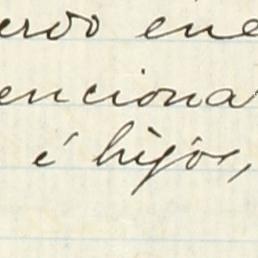 erdo ene
enciona
é hijos,